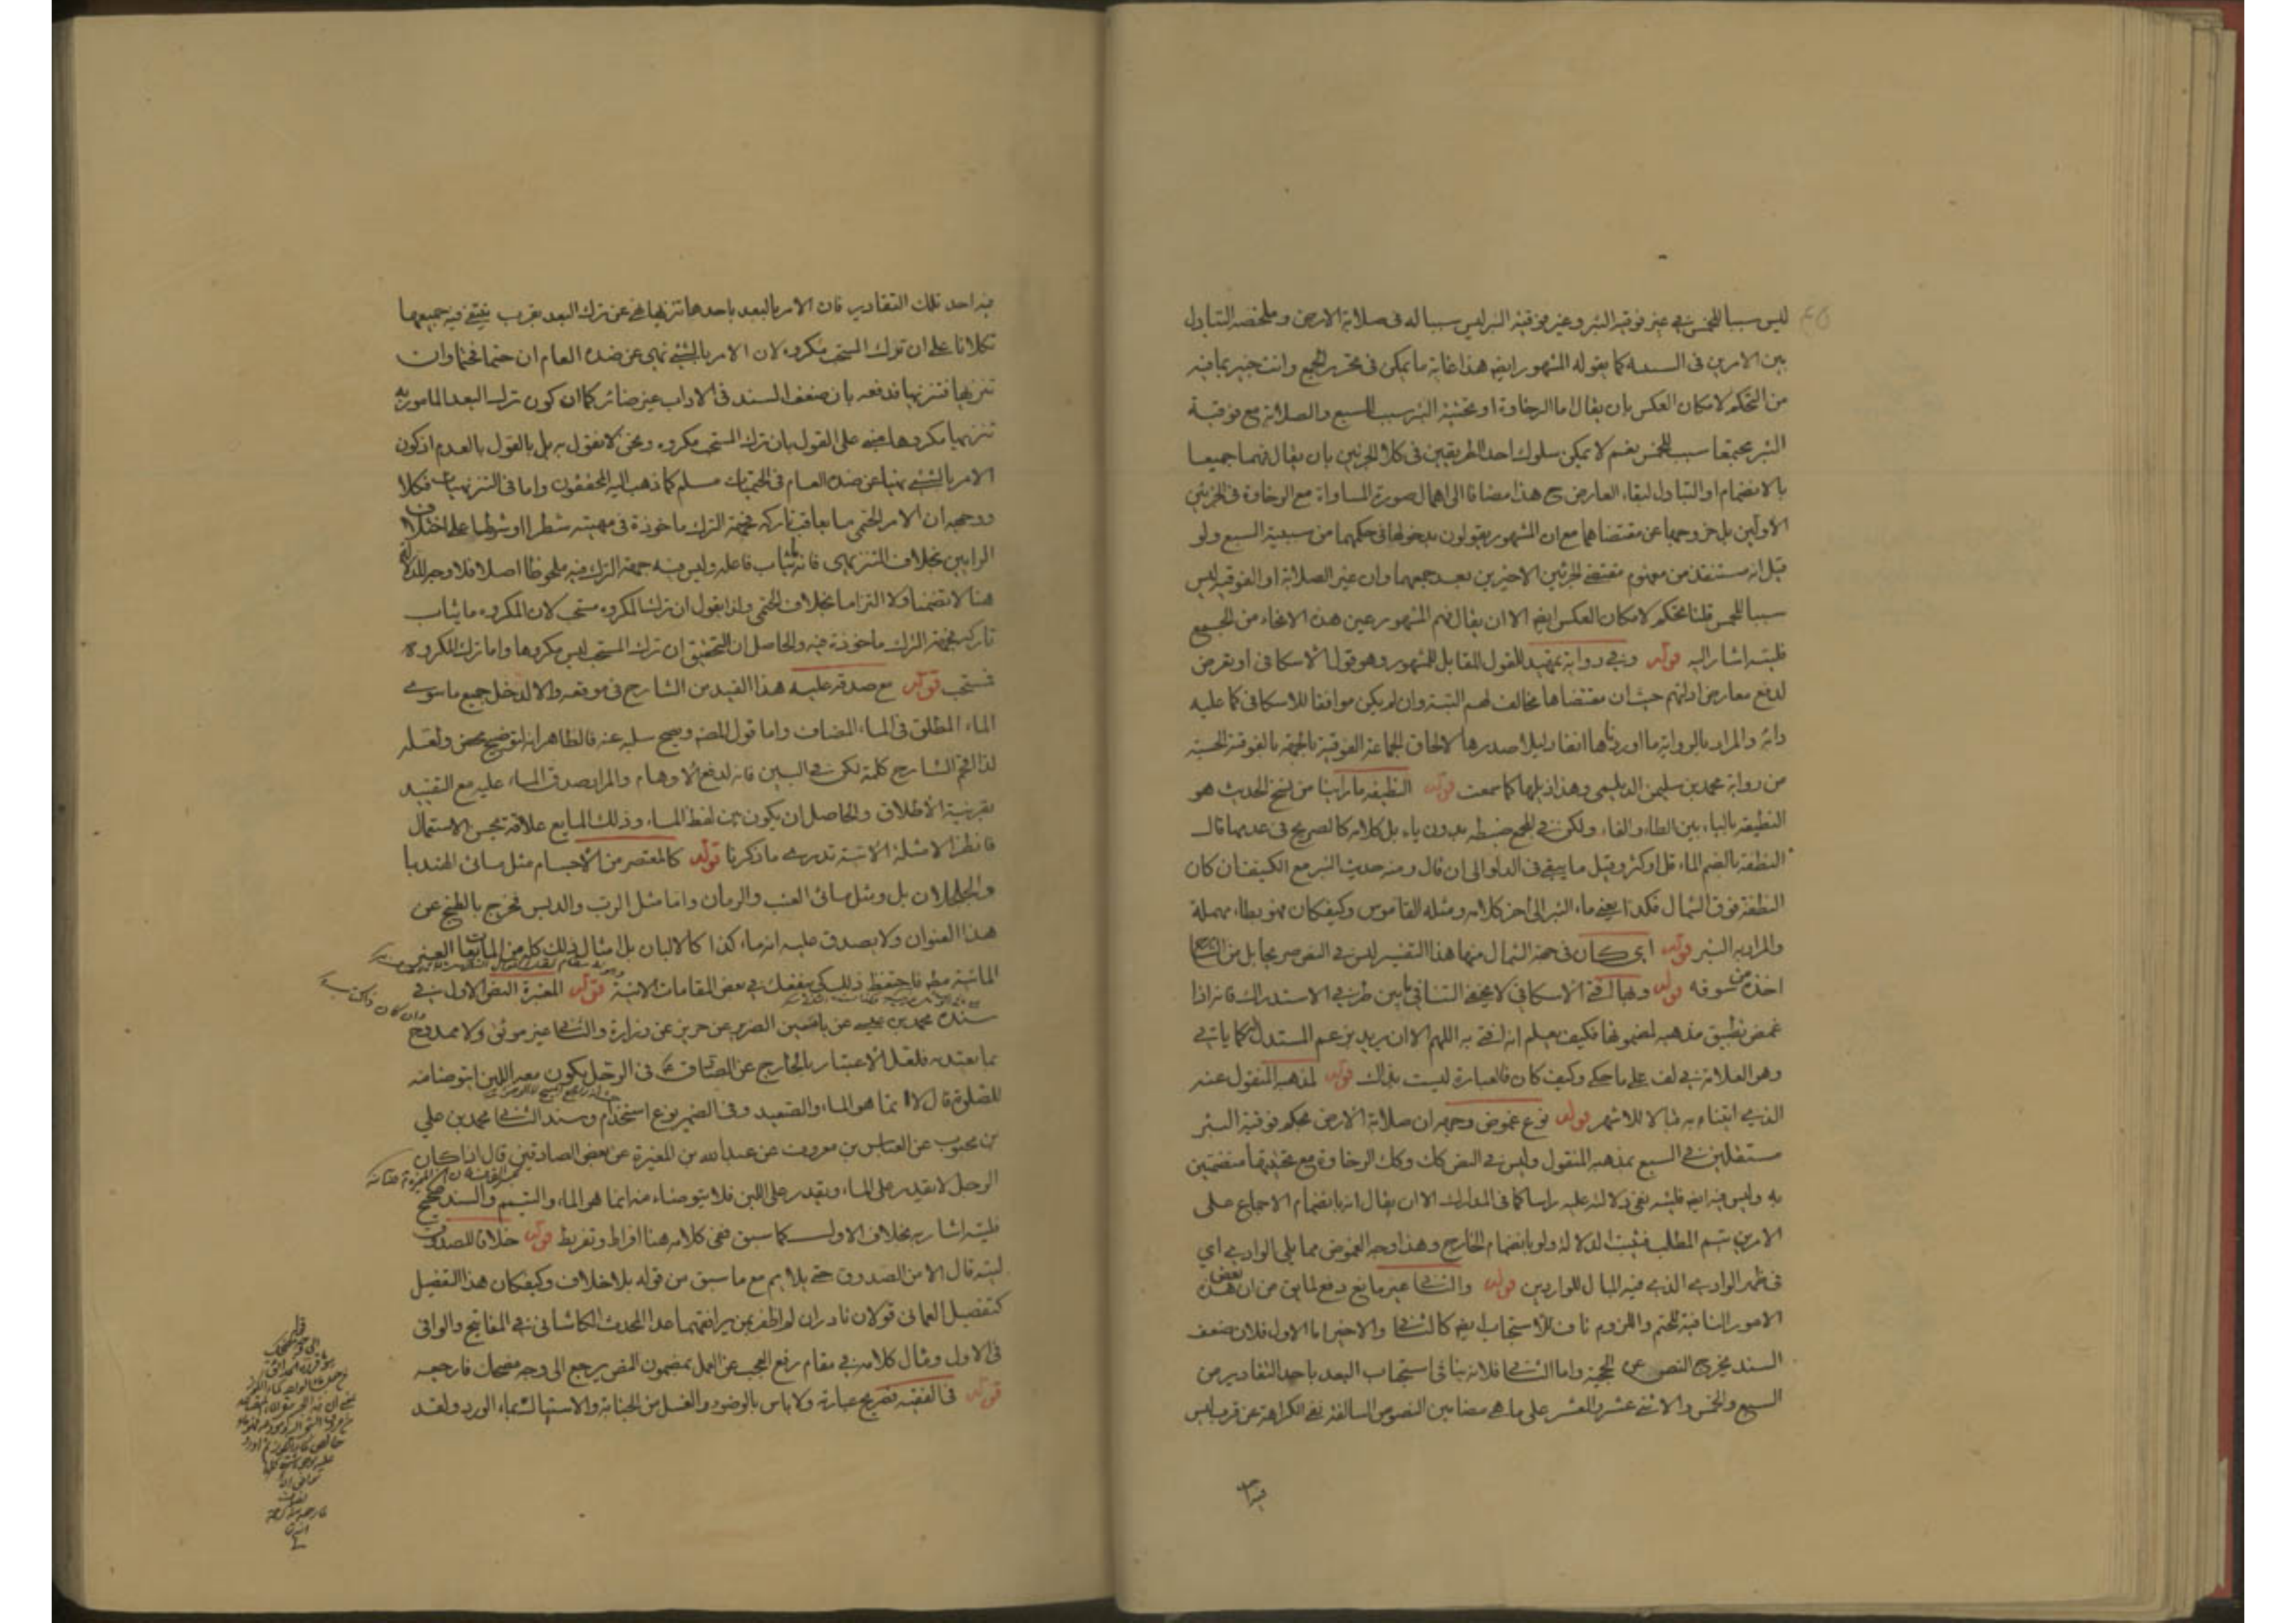 ليس سببا للخمس في غير فوقية البئر وغير فوقية البئر ليس سببا له فى صلابة الارض وملخصه التبادل
بين الامرين فى السببية كما يقوله المشهور ايضا هذا غاية ما يمكن فى تحرير الجمع وانت خبير بما فيه
من التحكم لامكان العكس بان يقال اما الرخاوة او تحتية البئر سبب للسبع والصلابة مع فوقية
البئر مجتمعا سبب للخمس نعم لا يمكن سلوك احد الطريقين فى كلا الجزئين بان يقال فيهما جميعا
بالانضمام او التبادل لبقاء التعارض ح هذا مضافا الى اهمال صورة المساواة مع الرخاوة فى الجزئين
الاولين بل خروجها عن مقتضاهما مع ان المشهور يقولون بدخولها فى حكمهما من سببية السبع ولو
قيل انه مستنفذ من مفهوم مقتضى الجزئين الاخيرين بعد جمعهما وان غير الصلابة او الفوقية ليس
سببا للخمس قلنا تحكم لامكان العكس ايضا الا ان يقال فهم المشهور عين هذه الانحاء من الجميع
فليته اشار اليه قوله وفي رواية تمهيد للقول المقابل للمشهور وهو قول الاسكافى او تعرض
لدفع معارض ادلتهم حيث ان مقتضاها مخالف لهم البتة وان لم يكن موافقا للاسكافى كما عليه
دابه والمراد بالرواية ما اوردناها انفا دليلا صدرها لالحاق الجماعة الفوقية بالجهة بالفوقية الحسية
من رواية محمد بن سليمن الديلمى وهذا ذيلها كما سمعت قوله النظيفة ما راينا من نسخ الحديث هو
النطيفة بالياء بين الطاء والفاء ولكن في المجمع ضبطه بدون ياء بل كلامه كالصريح فى عدمها قال
النطفة بالضم الماء قل او كثر وقيل ما يبقى فى الدلو الى ان قال ومنه حديث البئر مع الكنيف ان كان
النطفة فوق الشمال فكذا يعنى ماء البئر الى اخر كلامه ومثله القاموس وكيف كان فهو بطاء مهملة
والمراد به البئر قوله اى كان فى جهة الشمال منها هذا التفسير ليس في النص صريحا بل من الشارح
اخذه من سوقه قوله وبها افتى الاسكافى لا يخفى التنافى ما بين طرفي الاستدراك فانه اذا
غمض تطبيق مذهبه لمضمونها فكيف يعلم انه افتى به اللهم الا ان يريد بزعم المستدل كما ياتي
وهو العلامة في لف على ما حكى وكيف كان فالعبارة ليست بذاك قوله لمذهبه المنقول عنه
الذي افتاء به خالا للاشهر قوله نوع غموض وجهه ان صلابة الارض بحكم فوقية البئر
مستقلين في السبع بمذهبه المنقول وليس في النص كك وكك الرخاوة مع تحتيتها منضمتين
به وليس فيه ايضا فليته نفى دلالته عليه راسا كما فى المدارك الا ان يقال انه بانضمام الاجماع على
الامرين يتم المطلب فثبت الدلالة ولو بانضمام الخارج وهذا وجه الغموض مما يلي الوادي اي
فى ظهر الوادي الذي فيه المبال للواردين قوله والثاني غير مانع دفع لما يق من ان بعض هذه
الامور النافية للحتم واللزوم ناف للاستحباب ايضا كالثاني والاخير اما الاول فلان ضعف
السند يخرج النص عن الحجية واما الثاني فلانه ينافى استحباب البعد باحد التقادير من
السبع والخمس والاثني عشر والعشر على ما هي مضامين النصوص السالفة نفي الكراهة عن قرب ليس
فيه احد
فيه احد تلك التقادير فان الامر بالبعد باحدها تنزيها نهي عن ترك البعد بقرب ينتفي فيه جميعها
تكلانا على ان ترك المستحب مكروه لان الامر بالشيء نهى عن ضده العام ان حتما فحتما وان
تنزيها فتنزيها فدفعه بان ضعف السند فى الاداب غير ضائر كما ان كون ترك البعد المامور به
تنزيها مكروها مبني على القول بان ترك المستحب مكروه ونحن لا نقول به بل بالقول بالعدم اذ كون
الامر بالشيء نهيا عن ضده العام فى الحتميات مسلم كما ذهب اليه المحققون واما فى التنزيهيات فكلا
ووجهه ان الامر الحتمى ما يعاقب تاركه فجهة الترك ماخوذة فى مهيته شطرا او شرطا على اختلاف
الرايين بخلاف التنزيهى فانه يثاب فاعله وليس فيه جهة الترك فيه ملحوظا اصلا فلا وجه للدلالة
هنا لا تضمنا ولا التزاما بخلاف الحتمى ولذا نقول ان ترك المكروه مستحب لان المكروه ما يثاب
تاركه فجهة الترك ماخوذة فيه والحاصل ان التحقيق ان ترك المستحب ليس مكروها واما ترك المكروه
فمستحب قوله مع صدقه عليه هذا القيد من الشارح فى موقعه والا لدخل جميع ما سوى
الماء المطلق فى الماء المضاف واما قول المصنف ويصح سلبه عنه فالظاهر انه لتوضيح محض ولعله
لذا اقحم الشارح كلمة لكن في البين فانه لدفع الاوهام والمراد صدق الماء عليه مع التقييد
بقرينة الاطلاق والحاصل ان يكون بين لفظ الماء وذلك المايع علاقة تحسن الاستعمال
فانظر الامثلة الاتية تدري ما ذكرنا قوله كالمعتصر من الاجسام مثل مائى الهندبا
والخلاف بل ومثل مائى العنب والرمان واما مثل الرب والدبس فخرج بالطبخ عن
هذا العنوان ولا يصدق عليه انه ماء كذا كالالبان بل امثال ذلك كله من المايعات الغير
المائية مطلقا فاحتفظ ذلك كي ينفعك في بعض المقامات الاتية قوله المغيرة النص الاول في
سنده محمد بن عيسى عن ياسين الضرير عن حريز عن زرارة والثاني غير موثق ولا ممدوح
بما يعتد به فلعل الاعتبار بالخارج عن الصادق ع فى الرجل يكون معه اللبن ايتوضا منه
للصلوة قال لا انما هو الماء والصعيد وفى الضمير نوع استخدام وسند الثاني محمد بن علي
بن محبوب عن العباس بن معروف عن عبد الله بن المغيرة عن بعض الصادقين قال اذا كان
الرجل لا يقدر على الماء ويقدر على اللبن فلا يتوضاء منه انما هو الماء والتيمم والسند صحيح
فليته اشار به بخلاف الاول كما سبق ففى كلامه هنا افراط وتفريط قوله خلافا للصدوق
ليته قال الا من الصدوق حتى يلايم مع ما سبق من قوله بلا خلاف وكيف كان هذا التفصيل
كتفصيل العمانى قولان نادران لم اظفر بمن يرافقهما عدا المحدث الكاشانى في المفاتيح والوافى
فى الاول ومثال كلامه في مقام رفع العجب عن العمل بمضمون النص يرجع الى وجه مضحك فارجعه
قوله فى الفقيه تصريح عبارته ولا باس بالوضوء والغسل من الجنابة والاستياك بماء الورد ولقد